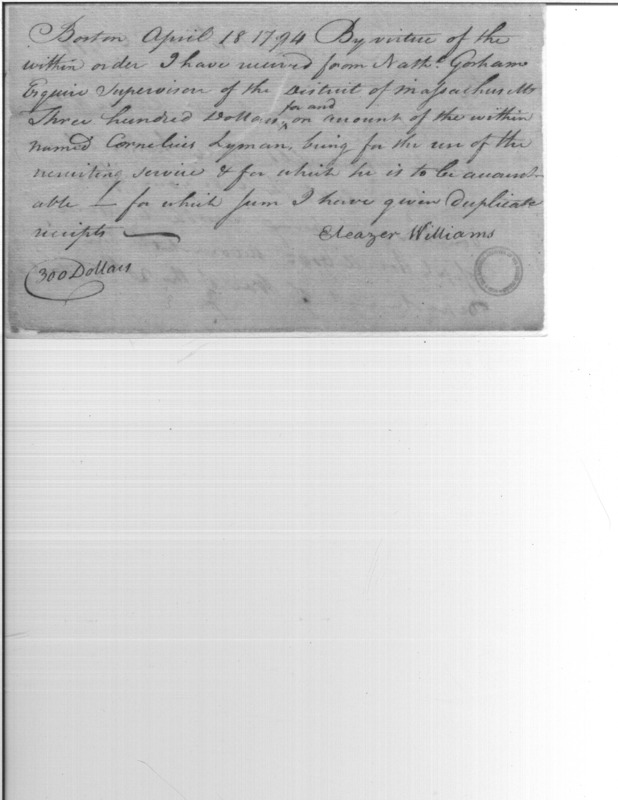 Boston April 18 1794 By virtue of the
within order I have received from Nathl. Gorham
Esquire Supervisor of the District of Massachusetts
Three hundred Dollars, for and on account of the within
named Cornelius Lyman, being for the use of the
recruiting service & for which he is to be account-
able — for which sum I have given duplicate
receipts —
Eleazer Williams
300 Dollars